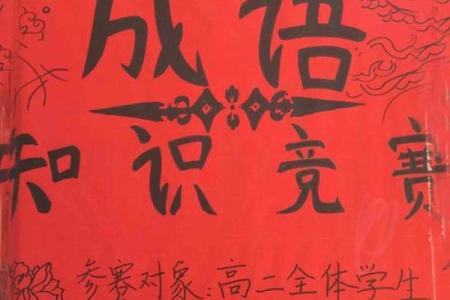 成语
知识竞赛
参赛对象:高二全体学生